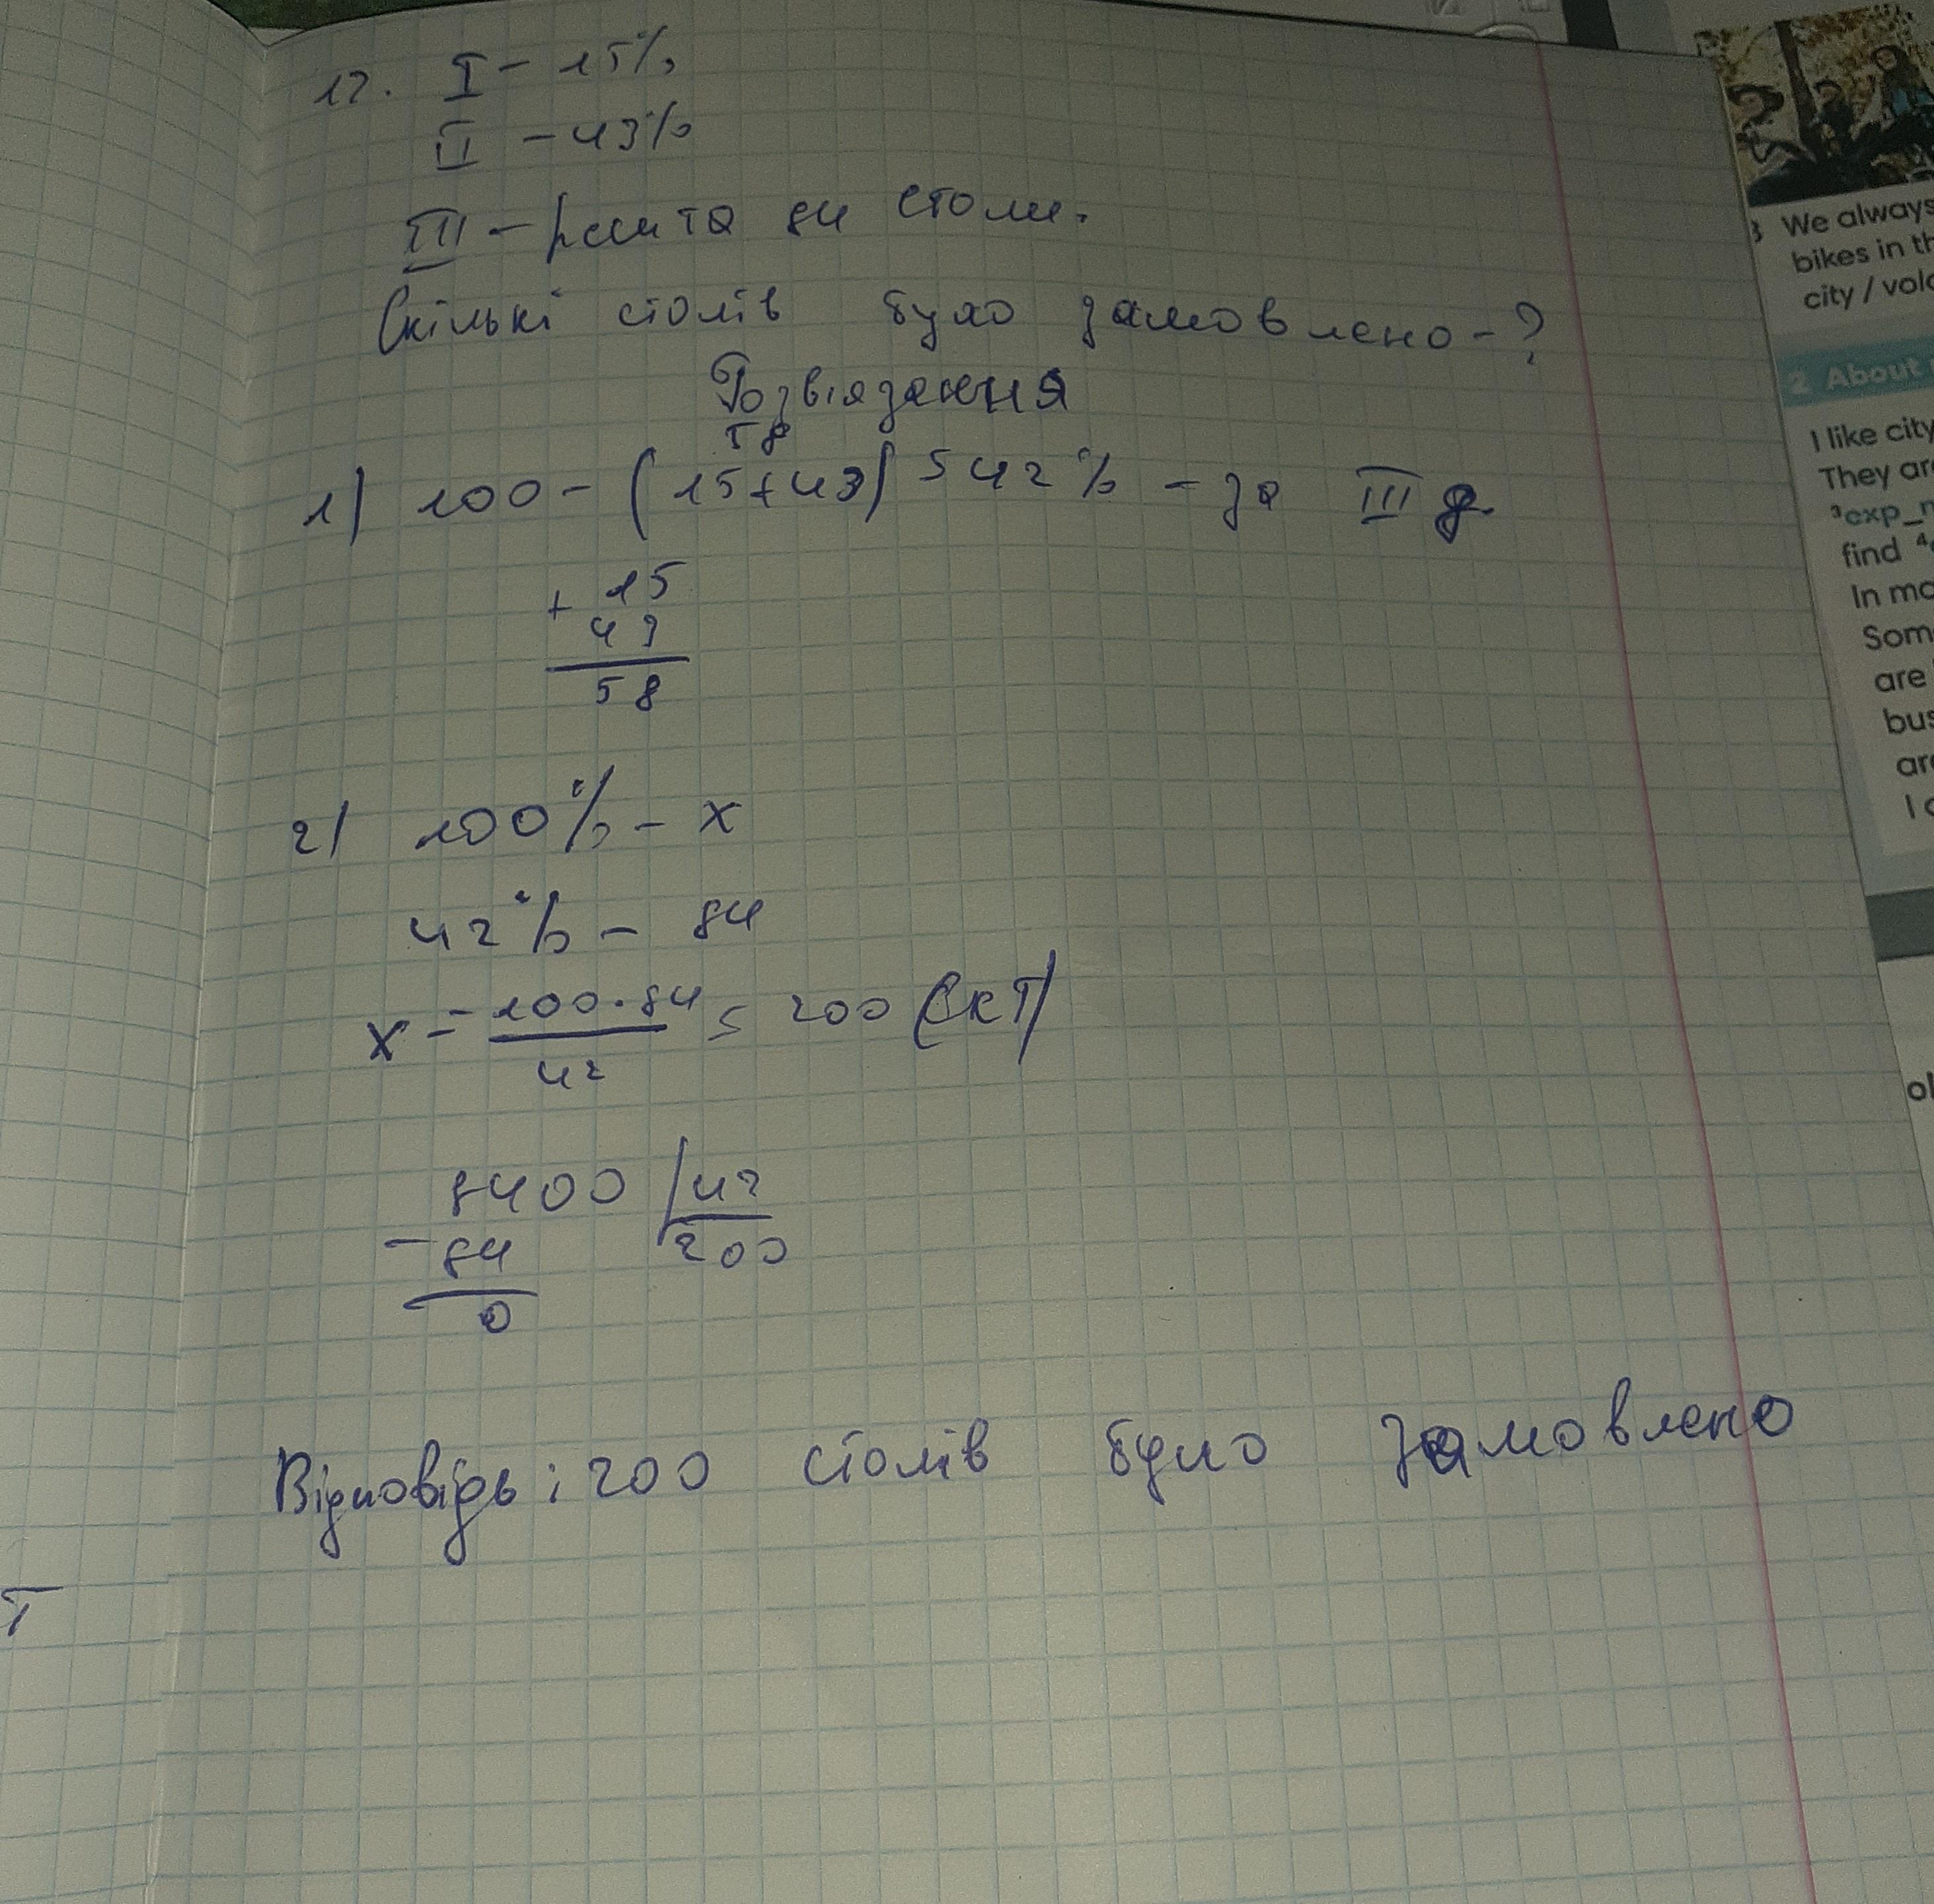 12. I - 15%
II - 43%
III - решта 84 столи.
Скількі столів було замовлено - ?
Розвіязання
58
1) 100 - (15+43) = 42% - за III д.
+ 15
43
58
2) 100% - x
42% - 84
x = 100·84 = 200
42
8400 | 42
- 84 200
0
Відповідь: 200 столів було замовлено
т
3 We always
bikes in th
city / volc
2 About
I like city
They are
³exp_n
find ⁴
In mo
Som
are
bus
are